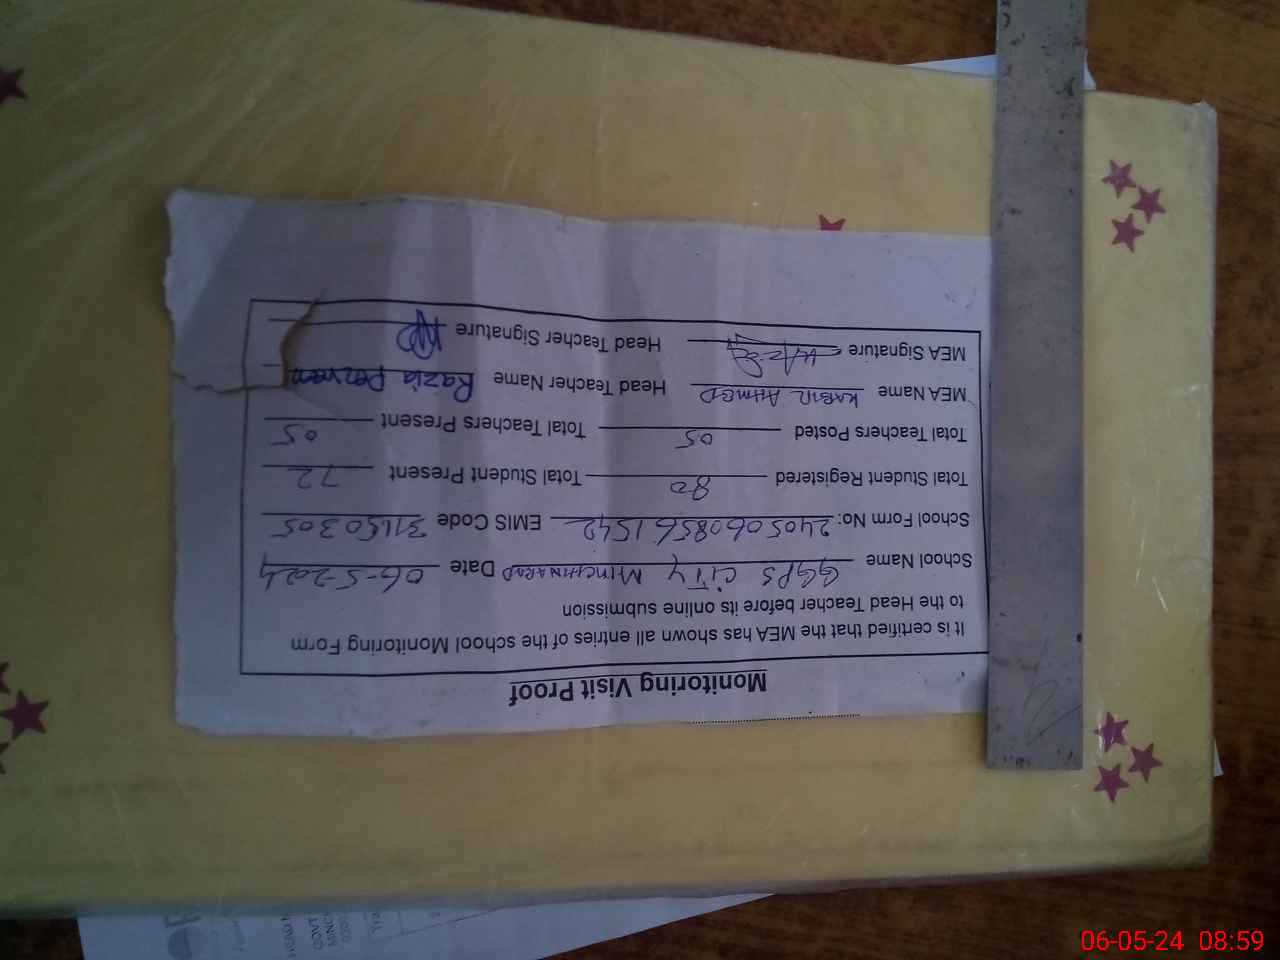 Monitoring Visit Proof
It is certified that the MEA has shown all entries of the school Monitoring Form
to the Head Teacher before its online submission
School Name GGPS CITY MINCHINABAD Date 06-5-2024
School Form No: 24050608561542 EMIS Code 31150305
Total Student Registered 80 Total Student Present 72
Total Teachers Posted 05 Total Teachers Present 05
MEA Name KABIR AHMED Head Teacher Name Razia Perveen
MEA Signature Head Teacher Signature
06-05-24 08:59